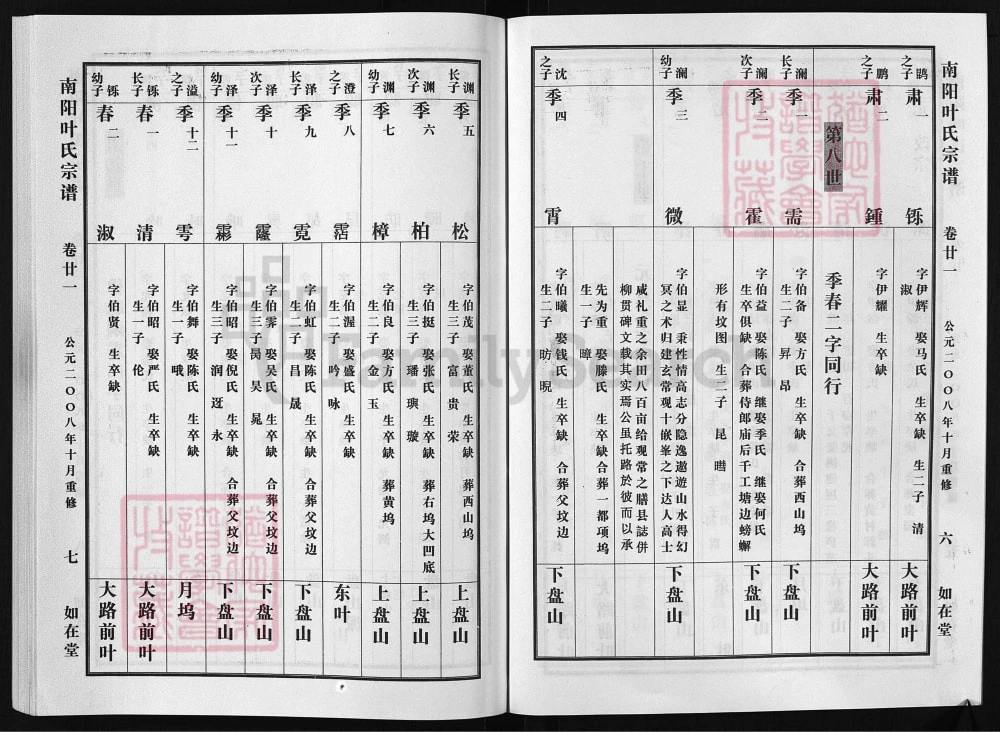 南阳叶氏宗谱
卷廿一
公元二〇〇八年十月重修
六
如在堂
鹍之子
肃一
铄
字伊辉 娶马氏 生卒缺 生二子 清
淑
大路前叶
鹏之子
肃二
鍾
字伊耀 生卒缺
大路前叶
第八世
季春二字同行
澜长子
季一
需
字伯备 娶方氏 生卒缺 合葬西山坞
生二子 昇 昂
下盘山
澜次子
季二
霍
字伯益 娶陈氏 继娶季氏 继娶何氏
生卒俱缺 合葬侍郎庙后千工塘边螃蟹
形有坟图 生二子 昆 暳
下盘山
澜幼子
季三
微
字伯显 秉性情高志分隐逸遨遊山水得幻
冥之术归建玄常观十嵌峯之下达人高士
咸礼重之余田八百亩给观常之膳县誌併
柳贯碑文载其实焉公虽托路於彼而以承
先为重 娶滕氏 生卒缺合葬一都项坞
生一子 暲
下盘山
沈之子
季四
霄
字伯曦 娶钱氏 生卒缺 合葬父坟边
生二子 昉 晛
下盘山
渊长子
季五
松
字伯茂 娶董氏 生卒缺 葬西山坞
生三子 富 贵 荣
上盘山
渊次子
季六
柏
字伯挺 娶张氏 生卒缺 葬右坞大凹底
生三子 璠 璵 璇
上盘山
渊幼子
季七
樟
字伯良 娶方氏 生卒缺 葬黄坞
生二子 金 玉
上盘山
澄之子
季八
霑
字伯渥 娶盛氏 生卒缺
生二子 吟 咏
东叶
泽长子
季九
霓
字伯虹 娶陈氏 生卒缺 合葬父坟边
生二子 昌 晟
下盘山
泽次子
季十
霳
字伯霁 娶吴氏 生卒缺 合葬父坟边
生三子 昃 昊 晃
下盘山
泽幼子
季十一
霦
字伯昭 娶倪氏 生卒缺 合葬父坟边
生三子 润 迓 永
下盘山
溢之子
季十二
雩
字伯舞 娶陈氏 生卒缺
生一子 晆
月坞
铄长子
春一
清
字伯昭 娶严氏 生卒缺
生一子 伦
大路前叶
铄幼子
春二
淑
字伯贤 生卒缺
大路前叶
南阳叶氏宗谱
卷廿一
公元二〇〇八年十月重修
七
如在堂
FamilySearch